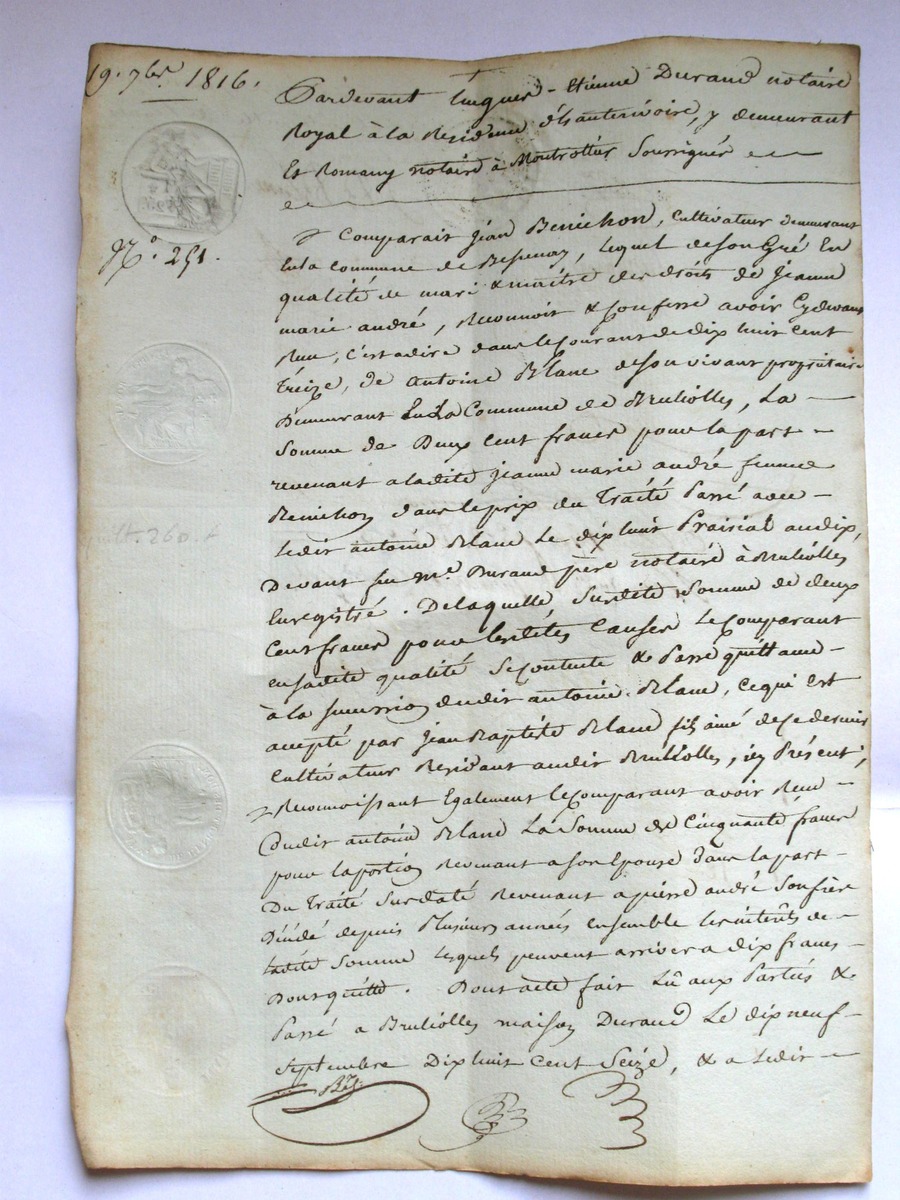 19. 7bre 1816.
Pardevant Hugues-Etienne Durand notaire
Royal à la Residence d'hauterivoire, y demeurant
Et Romany notaire à Montrottier Soussignés
N.° 251.
Comparait Jean Benichon, Cultivateur demeurant
En la commune de Bessenay, lequel de son Gré En
qualité de mari & maître des droits de Jeanne
marie andré, Reconnoit & Confesse avoir Cydevant
Reçu, C'est adire dans le Courant de dix huit cent
Treize, de antoine Blanc de son vivant propriétaire
Demeurant En La Commune de Bruliolles, La
Somme de Deux Cent francs pour la part
revenant a ladite Jeanne marie andré femme
Benichon dans le prix du Traité Passé avec
Ledit antoine Blanc Le dix huit Prairial an dix,
Devant feu Me. Durand père notaire à Brulioles
Enregistré. De laquelle Susdite Somme de deux
Cent francs pour lesdites Causes le Comparant
en sadite qualité Se Contente & Passe quittance
à la Succession dudit antoine Blanc, Ce qui Est
accepté par Jean Baptiste Blanc fils ainé de Ce dernier
Cultivateur Résidant audit Brulliolles, icy Présent,
Reconnoissant Egalement le Comparant avoir Reçu
Dudit antoine Blanc La Somme de Cinquante francs
pour la portion Revenant a Son Epouse Dans la part
Du Traité Susdaté Revenant a pierre andré Son frère
Décédé depuis Plusieurs années ensemble les intérêts de
ladite Somme Lesquels peuvent arriver a dix francs
Dont quitte. Dont acte fait Lû aux Parties &
Passé a Brulliolles maison Durand Le dix neuf
Septembre Dix huit Cent Seize, & a Ledit